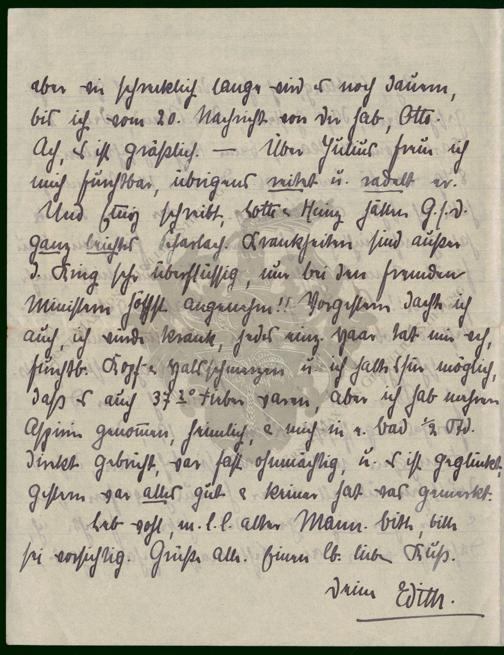 aber wie schrecklich lange wird es noch dauern,
bis ich vom 20. Nachricht von dir hab, Otto.
Ach, es ist gräßlich. — Über Julius freue ich
mich furchtbar, übrigens reitet u. radelt er.
Und schreibt, Lotte & Hunz hätten G.s.d.
ganz leichtes Scharlach. Krankheiten sind außer
d. Krieg sehr überflüssig, nur bei den fremden
Ministern höchst angenehm!! Vorgestern dachte ich
auch, ich würde krank, jedes einz. Haar tat mir weh,
furchtb. Kopf & Halsschmerzen u. ich halte für möglich,
daß es auch 37 Fieber waren, aber ich hab mehrere
Aspirin genommen, heimlich, & mich in e. Bad ½ Std.
direkt gebrüht, war fast ohnmächtig, u. es ist geglückt.
Gestern war alles gut & keiner hat was gemerkt.
Leb wohl, m. l. l. alter Mann. bitte, bitte
sei vorsichtig. Grüße alle. Einen lb. lieben Kuß.
Deine Edith.